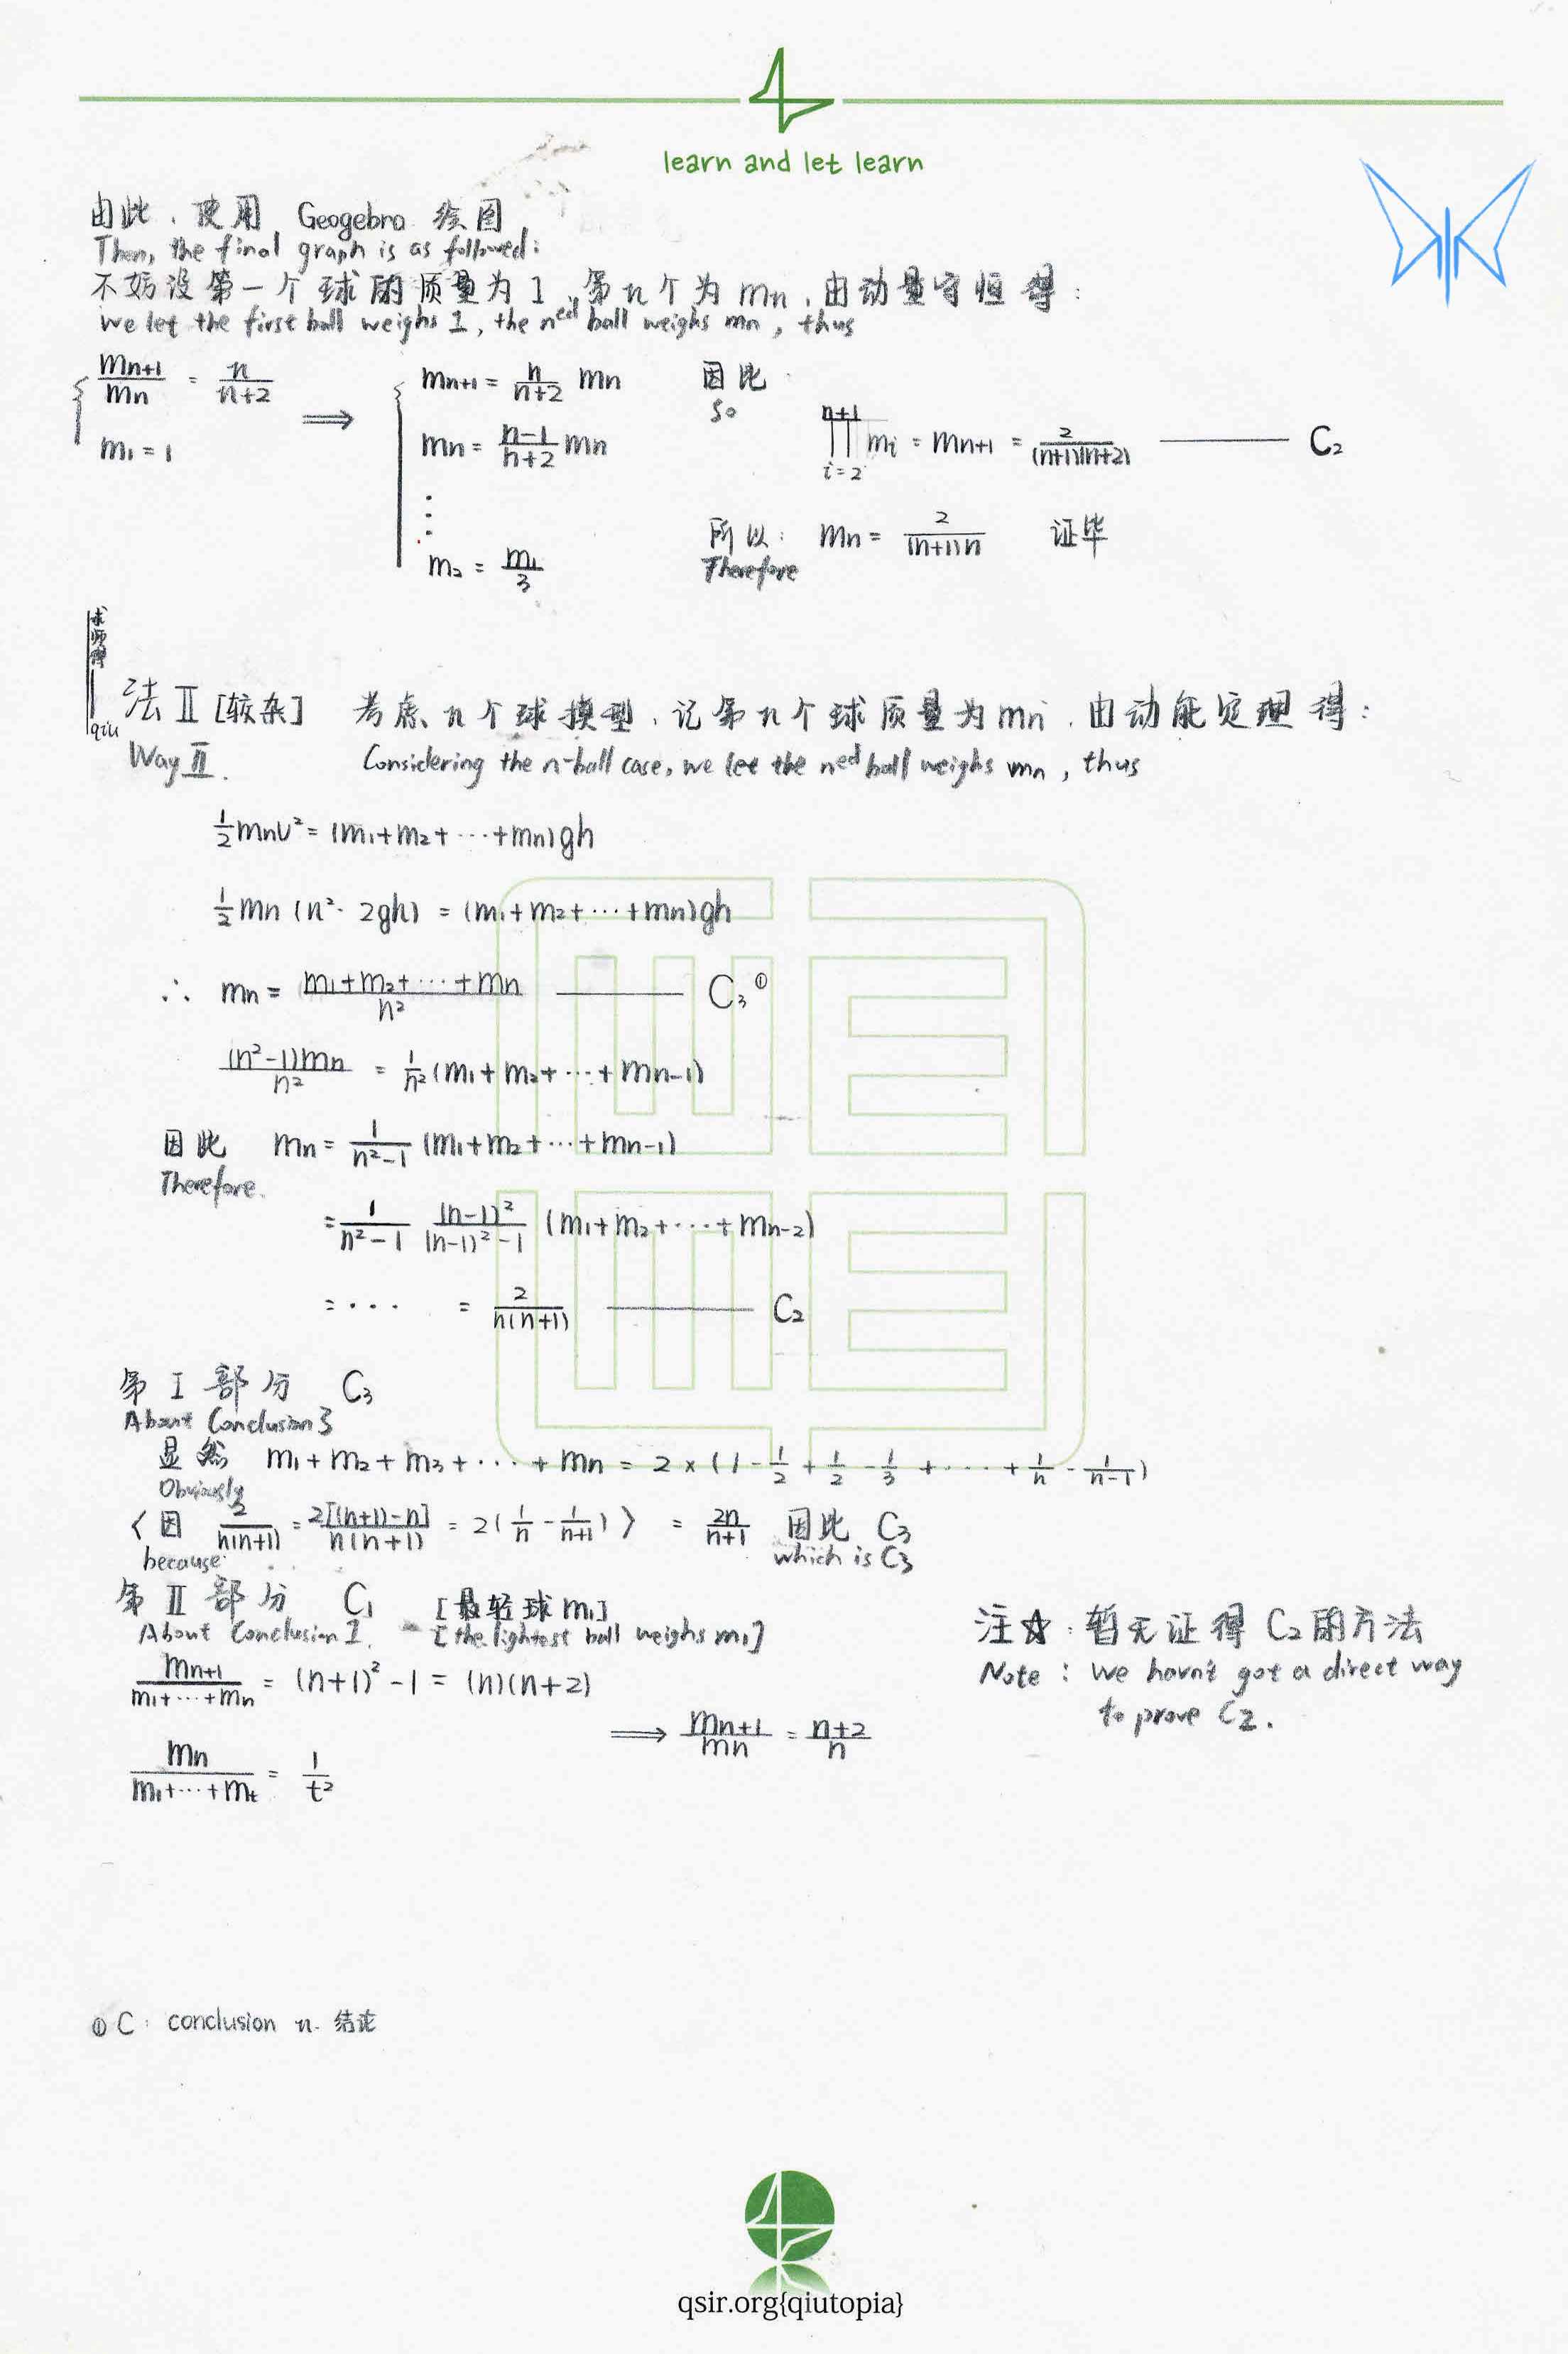 learn and let learn
由此，使用 Geogebra 绘图，
Then, the final graph is as followed:
不妨设第一个球的质量为1，第n个为mn，由动量守恒得：
We let the first ball weighs 1, the ned ball weighs mn, thus
{ mn+1/mn = n/n+2
m1 = 1
⟹
{ mn+1 = n/n+2 mn
mn = n-1/n+2 mn
⋮
m2 = m1/3
因此
So
∏ i=2 n+1 mi = mn+1 = 2/(n+1)(n+2) —— C2
所以： mn = 2/(n+1)n 证毕
Therefore
求师得
qiu
法Ⅱ [较杂] 考虑n个球模型，记第n个球质量为mn，由动能定理得：
Way Ⅱ. Considering the n-ball case, we let the ned ball weighs mn, thus
1/2 mnv² = (m1+m2+⋯+mn)gh
1/2 mn (n²· 2gh) = (m1+m2+⋯+mn)gh
∴ mn = m1+m2+⋯+mn/n² —— C3 ①
(n²-1)mn/n² = 1/n² (m1+m2+⋯+mn-1)
因此 mn = 1/n²-1 (m1+m2+⋯+mn-1)
Therefore.
= 1/n²-1 (n-1)²/(n-1)²-1 (m1+m2+⋯+mn-2)
= ⋯ = 2/n(n+1) —— C2
第Ⅰ部分 C3
About Conclusion 3
显然 m1+m2+m3+⋯+mn = 2×(1-1/2+1/2-1/3+⋯+1/n-1/n-1)
Obviously
〈因 2/n(n+1) = 2[(n+1)-n]/n(n+1) = 2(1/n - 1/n+1)〉 = 2n/n+1 因此 C3
because which is C3
第Ⅱ部分 C1 [最轻球m1]
About Conclusion 1. [the lightest ball weighs m1]
mn+1/m1+⋯+mn = (n+1)²-1 = (n)(n+2)
⟹ mn+1/mn = n+2/n
mn/m1+⋯+mt = 1/t²
注☆：暂无证得C2的方法
Note: We havn't got a direct way
to prove C2.
① C: conclusion n. 结论
qsir.org{qiutopia}